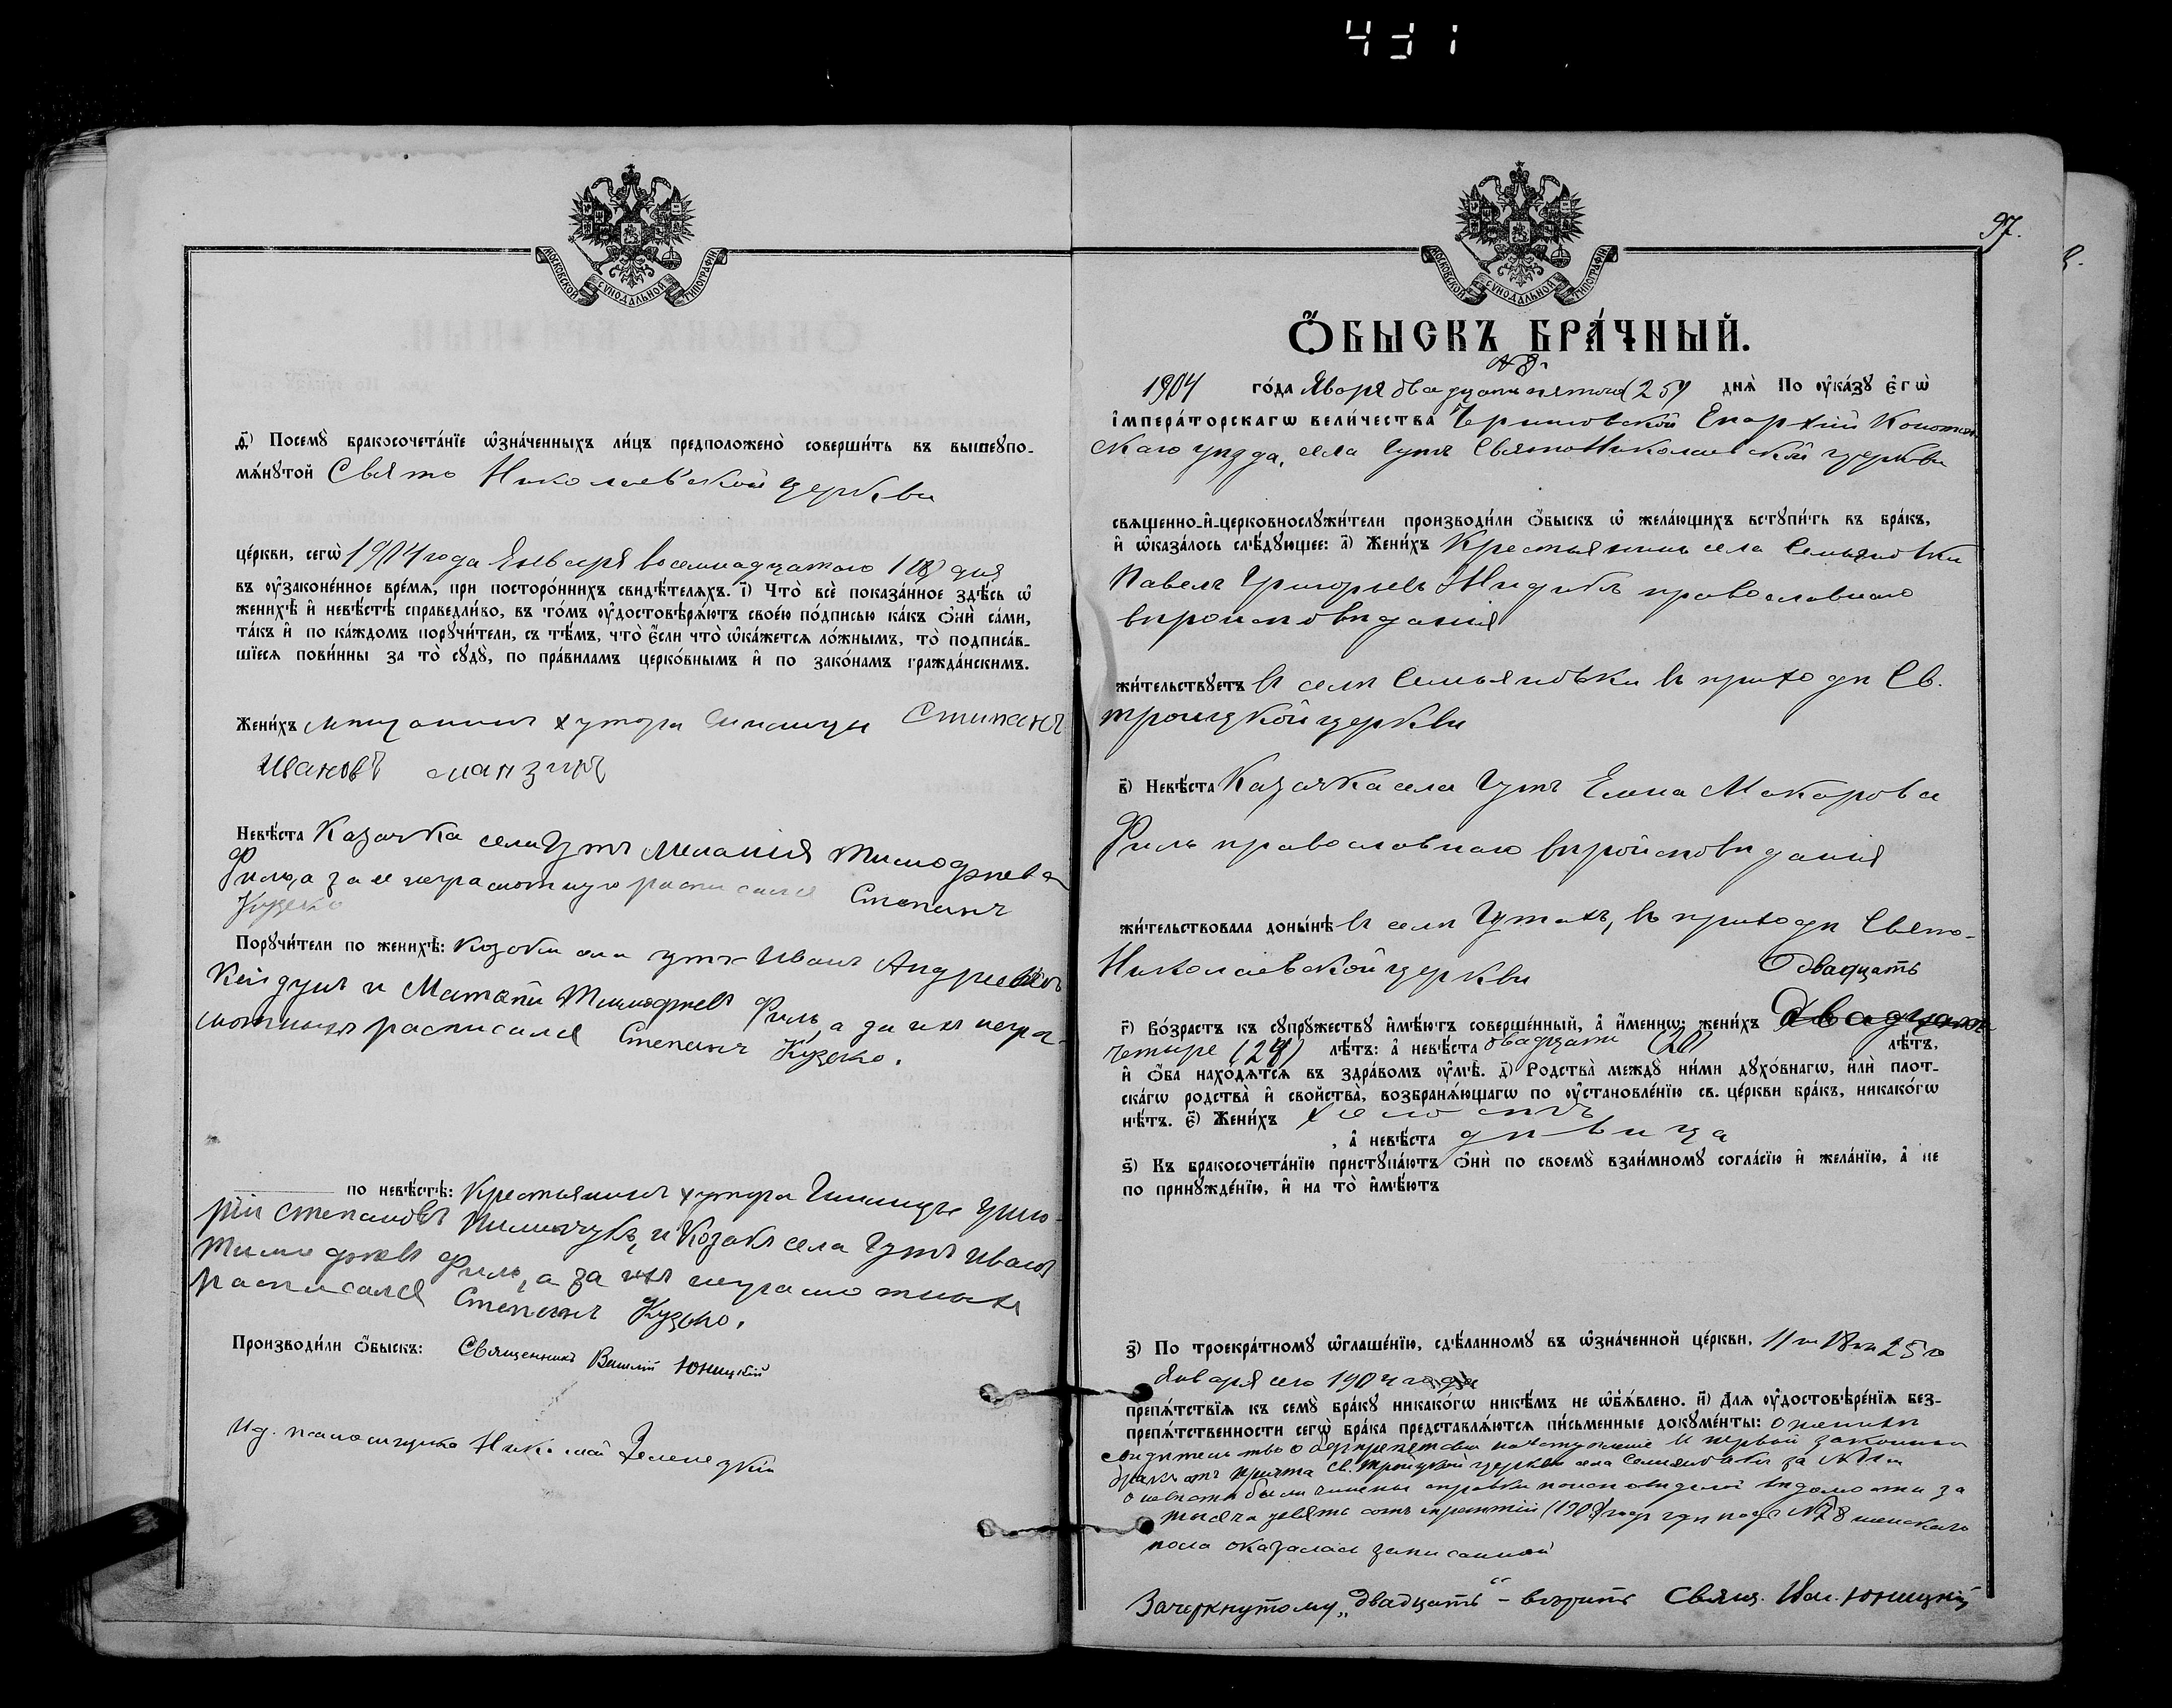 МОСКОВСКОЙ СѴНОДАЛЬНОЙ ТИПОГРАФІИ
д҃) Посемꙋ̀ бракосочета́нїе ѡ҆зна́ченныхъ ли́цъ предположено̀ соверши́ть въ вышеꙋпо-
мѧ́нꙋтой Свято Николаевской церкви
це́ркви, сегѡ̀ 1904 года Января восемнадцатаго (18) дня
въ ᲂу҆зако́ненное вре́мѧ, при посторо́ннихъ свидѣ́телѧхъ. і҃) Что̀ всѐ показа́нное здѣ́сь ѡ҆
женихѣ̀ и҆ невѣ́стѣ справедли́во, въ то́мъ ᲂу҆достовѣрѧ́ютъ свое́ю по́дписью ка́къ ѻ҆нѝ са́ми,
та́къ и҆ по ка́ждомъ порꙋчи́тели, съ тѣ́мъ, что̀ є҆́сли что̀ ѡ҆ка́жетсѧ ло́жнымъ, то̀ подписа́в-
шїесѧ пови́нны за то̀ сꙋдꙋ̀, по пра́виламъ церко́внымъ и҆ по зако́намъ гражда́нскимъ.
Жени́хъ мѣщанинъ хутора Степанъ
Ивановъ
Невѣ́ста Казачка села Гутъ Меланія Тимофѣева
Филь, а за ее неграмотную расписался Степанъ
Куцеко
Порꙋчи́тели по женихѣ̀: Козаки села Гутъ Иванъ Андреевъ
и Матвѣй Тимофѣевъ Филь, а за ихъ негра-
мотныхъ расписался Степанъ Куцеко.
по невѣ́стѣ: Крестьянинъ хутора Григо-
рій Степановъ и Козакъ села Гутъ Иванъ
Тимофѣевъ Филь, а за ихъ неграмотныхъ
расписался Степанъ Куцеко.
Производи́ли ѻ҆́быскъ: Священникъ Василій Юницкій
И.д. псаломщика Николай Зеленецкій
97.
МОСКОВСКОЙ СѴНОДАЛЬНОЙ ТИПОГРАФІИ
Ѻ҆́БЫСКЪ БРА́ЧНЫЙ.
№ 8.
1904 го́да Январ двадцать пятаго (25) днѧ̀ По ᲂу҆ка́зꙋ є҆гѡ̀
і҆мпера́торскагѡ вели́чества Черниговской Епархіи Конотоп-
скаго уѣзда, села Гутъ СвятоНиколаевской церкви
свѧщенно-и҆-церковнослꙋжи́тели производи́ли ѻ҆́быскъ ѡ҆ жела́ющихъ встꙋпи́ть въ бра́къ,
и҆ ѡ҆каза́лось слѣ́дꙋющее: а҃) Жени́хъ Крестьянинъ села Семьяновки
Павелъ Григорьевъ православнаго
вѣроисповѣданія
жи́тельствꙋетъ въ селѣ Семьяновкѣ въ приходѣ Св.
Троицкой церкви
в҃) Невѣ́ста Казачка села Гутъ Елена Макарова
Филь православнаго вѣроисповѣданія
жи́тельствовала доны́нѣ въ селѣ Гутахъ, въ приходѣ Свято-
Николаевской церкви
двадцать
г҃) Во́зрастъ къ сꙋпрꙋ́жествꙋ и҆мѣ́ютъ соверше́нный, а҆̀ и҆́меннѡ: жени́хъ двадцать
четыре (24) лѣ́тъ: а҆̀ невѣ́ста двадцати (20) лѣ́тъ,
и҆ ѻ҆́ба нахо́дѧтсѧ въ здра́вомъ ᲂу҆мѣ̀. д҃) Родства̀ междꙋ̀ ни́ми дꙋхо́внагѡ, и҆лѝ плот-
ска́гѡ родства̀ и҆ свойства̀, возбранѧ́ющагѡ по ᲂу҆становле́нїю св. це́ркви бра́къ, никако́гѡ
нѣ́тъ. є҃) Жени́хъ холостъ
, а҆̀ невѣ́ста дѣвица
ѕ҃) Къ бракосочета́нїю пристꙋпа́ютъ ѻ҆нѝ по своемꙋ̀ взаи́мномꙋ согла́сїю и҆ жела́нїю, а҆̀ не
по принꙋжде́нїю, и҆ на то̀ и҆мѣ́ютъ
з҃) По троекра́тномꙋ ѡ҆глаше́нїю, сдѣ́ланномꙋ въ ѡ҆зна́ченной це́ркви, 11 го 18 го и 25 го
Января сего 1904 года
препѧ́тствїѧ къ семꙋ̀ бра́кꙋ никако́гѡ никѣ́мъ не ѡ҆б̾ѧ́влено. и҃) Длѧ ᲂу҆достовѣре́нїѧ без-
препѧ́тственности сегѡ̀ бра́ка представлѧ́ютсѧ пи́сьменные докꙋме́нты: о женихѣ
свидѣтельство о безпрепятств. на вступленіе въ первый законный
бракъ отъ причта Св. Троицкой церкви села Семьяновки за №
о невѣстѣ были справки исповѣдной вѣдомости за
тысяча девять сотъ третій (1903) годъ гдѣ подъ № 78 женскаго
пола оказалась записанной
Зачеркнутому „двадцать“ – вѣрить Свящ. Вас. Юницкій